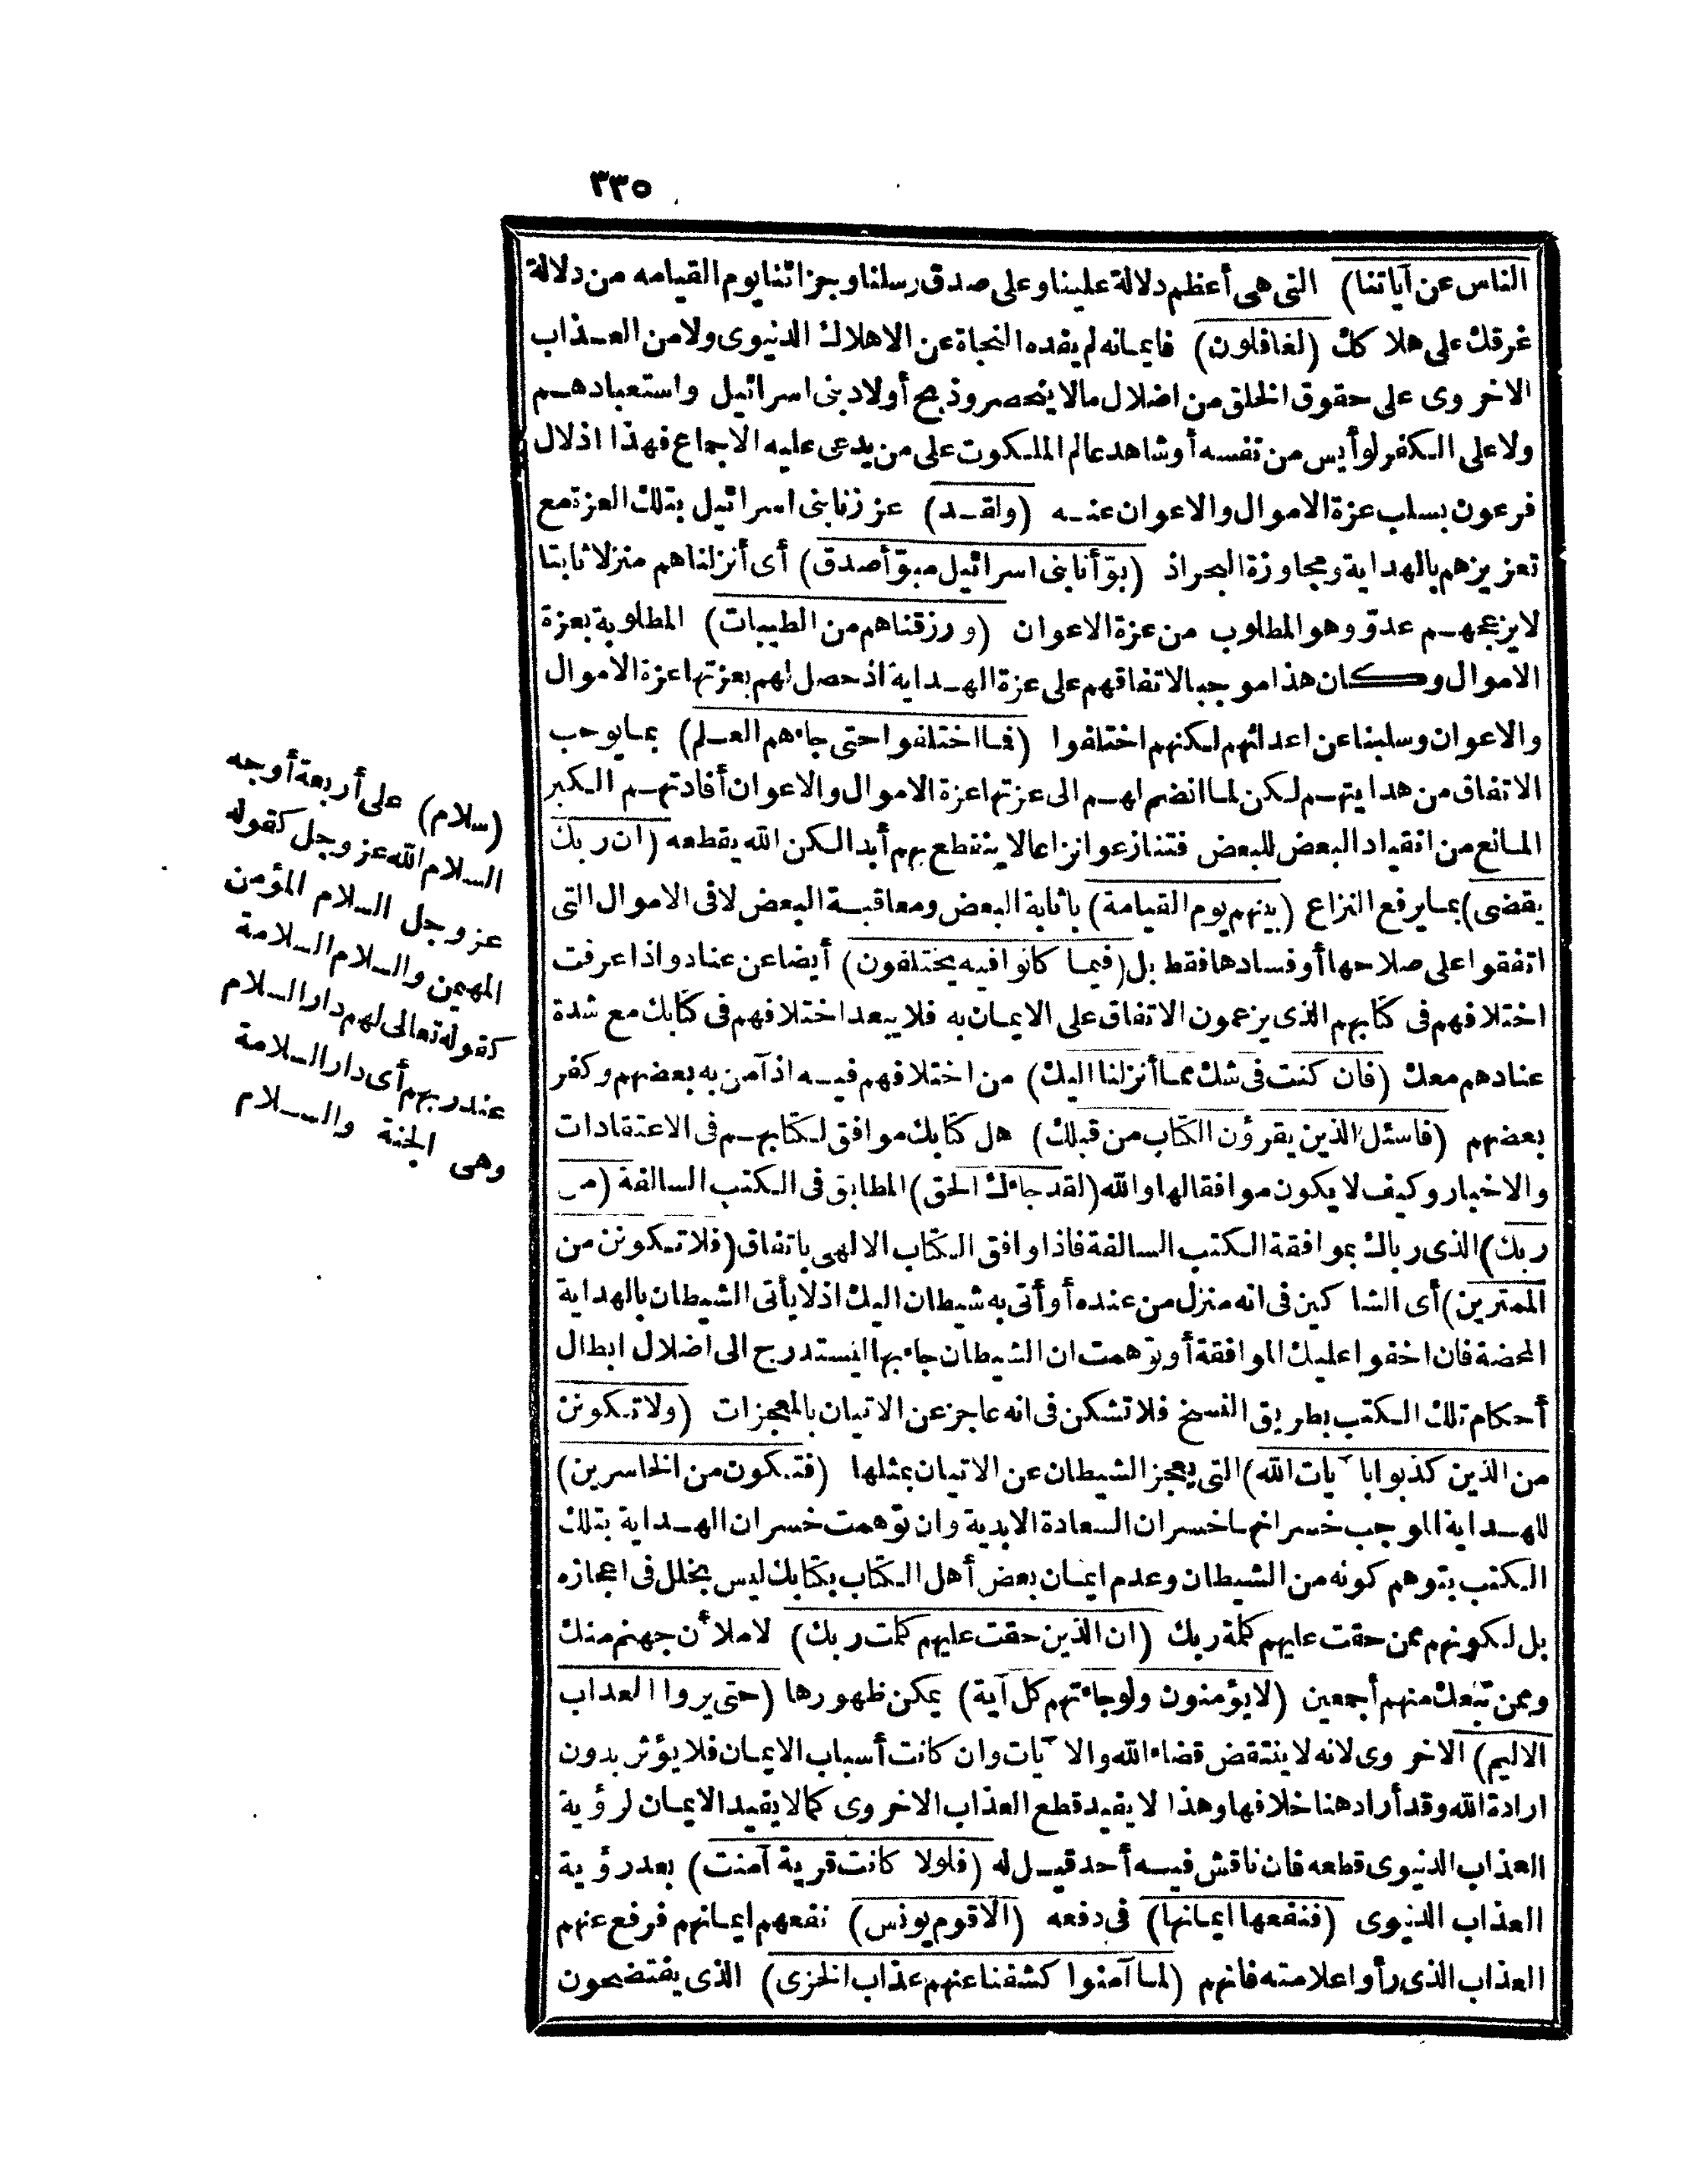 ٣٣٥
الناس عن آياتنا) التى هى أعظم دلالة علينا وعلى صدق رسلنا وجزائنا يوم القيامه من دلالة
غرقك على هلاكك (لغافلون) فايمانه لم يفده النجاة عن الاهلاك الدنيوى ولا من العذاب
الاخروى على حقوق الخلق من اضلال مالا ينحصر وذبح أولاد بنى اسرائيل واستعبادهم
ولا على الكفر لو أيس من نفسه أو شاهد عالم الملكوت على من يدعى عليه الاجماع فهذا اذلال
فرعون بسلب عزة الاموال والاعوان عنه (ولقد) عززنا بنى اسرائيل بتلك العزة مع
تعزيزهم بالهداية ومجاوزة البحر اذ (بوّأنا بنى اسرائيل مبوّأ صدق) أى أنزلناهم منزلا ثابتا
لا يزعجهم عدوّ وهو المطلوب من عزة الاعوان (ورزقناهم من الطيبات) المطلوبة بعزة
الاموال وكان هذا موجبا لاتفاقهم على عزة الهداية اذ حصل لهم بعزتها عزة الاموال
والاعوان وسلبنا عن اعدائهم لكنهم اختلفوا (فما اختلفوا حتى جاءهم العلم) بما يوجب
الاتفاق من هدايتهم لكن لما انضم لهم الى عزتها عزة الاموال والاعوان أفادتهم الكبر
المانع من انقياد البعض للبعض فتنازعوا نزاعا لا ينقطع بهم أبدا لكن الله يقطعه (ان ربك
يقضى) بما يرفع النزاع (بينهم يوم القيامة) باثابة البعض ومعاقبة البعض لا فى الاموال التى
اتفقوا على صلاحها أو فسادها فقط بل (فيما كانوا فيه يختلفون) أيضا عن عناد واذا عرفت
اختلافهم فى كتابهم الذى يزعمون الاتفاق على الايمان به فلا يبعد اختلافهم فى كتابك مع شدة
عنادهم معك (فان كنت فى شك مما أنزلنا اليك) من اختلافهم فيه اذ آمن به بعضهم وكفر
بعضهم (فاسئل الذين يقرؤن الكتاب من قبلك) هل كتابك موافق لكتابهم فى الاعتقادات
والاخبار وكيف لا يكون موافقا لها والله (لقد جاءك الحق) المطابق فى الكتب السالفة (من
ربك) الذى رباك بموافقة الكتب السالفة فاذا وافق الكتاب الالهى باتفاق (فلا تكونن من
الممترين) أى الشاكين فى انه منزل من عنده أو أتى به شيطان اليك اذ لا يأتى الشيطان بالهداية
المحضة فان اخفوا عليك الموافقة أو توهمت ان الشيطان جاء بها ليستدرج الى اضلال ابطال
أحكام تلك الكتب بطريق النسخ فلا تشكن فى انه عاجز عن الاتيان بالمعجزات (ولا تكونن
من الذين كذبوا بآيات الله) التى يعجز الشيطان عن الاتيان بمثلها (فتكون من الخاسرين)
للهداية الموجب خسرانها خسران السعادة الابدية وان توهمت خسران الهداية بتلك
الكتب بتوهم كونه من الشيطان وعدم ايمان بعض أهل الكتاب بكتابك ليس بخلل فى اعجازه
بل لكونهم ممن حقت عليهم كلمة ربك (ان الذين حقت عليهم كلمت ربك) لاملأن جهنم منك
وممن تبعك منهم أجمعين (لا يؤمنون ولو جاءتهم كل آية) يمكن ظهورها (حتى يروا العذاب
الاليم) الاخروى لانه لا ينتقض قضاء الله والآيات وان كانت أسباب الايمان فلا يؤثر بدون
ارادة الله وقد أراد هنا خلافها وهذا لا يفيد قطع العذاب الاخروى كما لا يفيد الايمان لرؤية
العذاب الدنيوى قطعه فان ناقش فيه أحد قيل له (فلولا كانت قرية آمنت) بعد رؤية
العذاب الدنيوى (فنفعها ايمانها) فى دفعه (الا قوم يونس) نفعهم ايمانهم فرفع عنهم
العذاب الذى رأوا علامته فانهم (لما آمنوا كشفنا عنهم عذاب الخزى) الذى يفتضحون
(سلام) على أربعة أوجه
السلام الله عز وجل كقوله
عز وجل السلام المؤمن
المهيمن والسلام السلامة
كقوله تعالى لهم دار السلام
عند ربهم أى دار السلامة
وهى الجنة والسلام